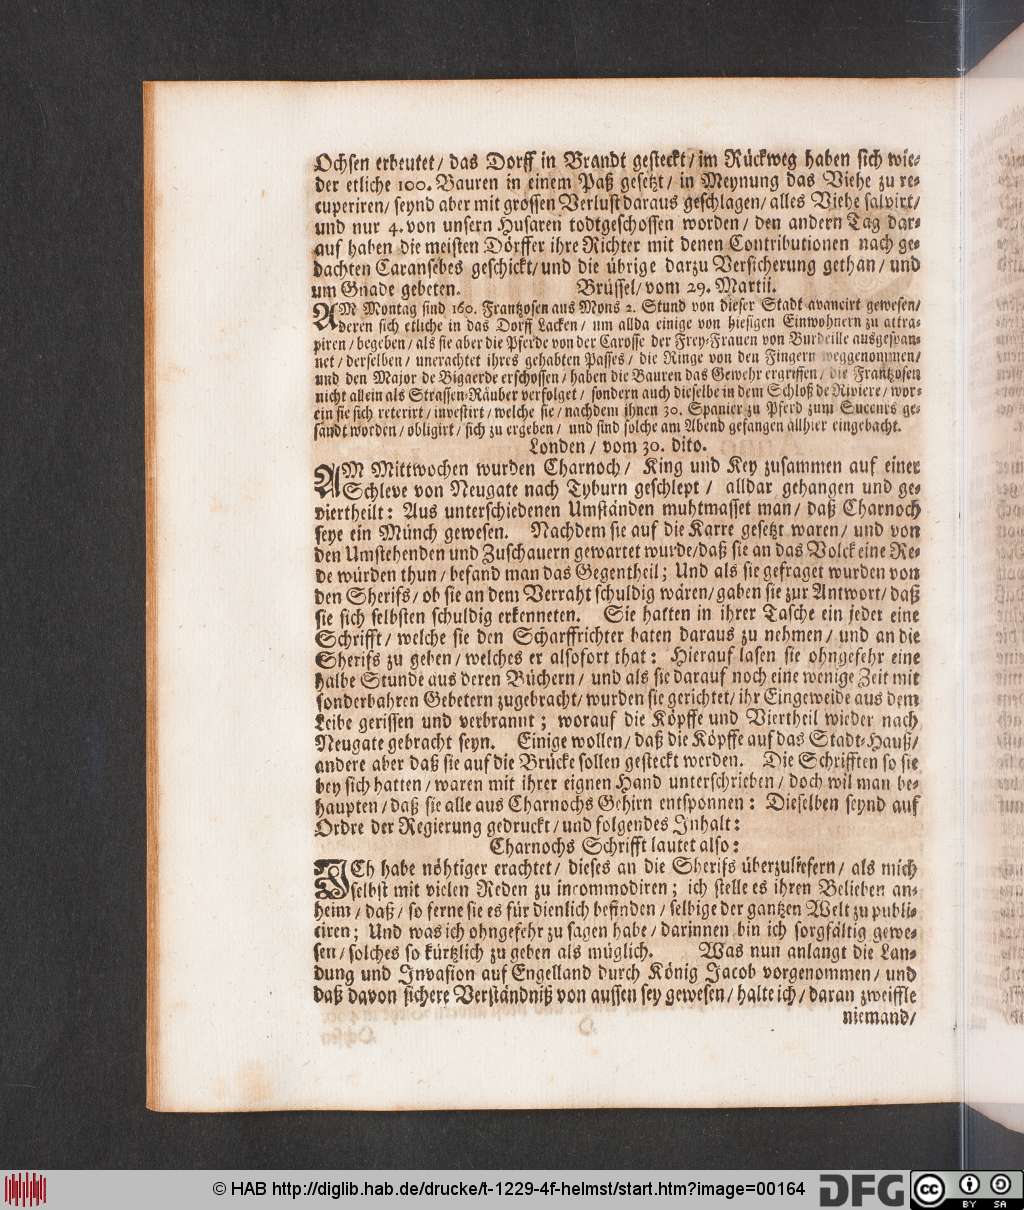 Ochsen erbeutet/ das Dorff in Brandt gesteckt/ im Rückweg haben sich wie-
der etliche 100. Bauren in einem Paß gesetzt/ in Meynung das Viehe zu re-
cuperiren/ seynd aber mit grossen Verlust daraus geschlagen/ alles Viehe salvirt/
und nur 4. von unsern Husaren todtgeschossen worden/ den andern Tag dar-
auf haben die meisten Dörffer ihre Richter mit denen Contributionen nach ge-
dachten Caransebes geschickt/ und die übrige darzu Versicherung gethan/ und
um Gnade gebeten. Brüssel/ vom 29. Martii.
AM Montag sind 160. Frantzosen aus Mons 2. Stund von dieser Stadt avancirt gewesen/
deren sich etliche in das Dorff Lacken/ um allda einige von hiesigen Einwohnern zu attra-
piren/ begeben/ als sie aber die Pferde von der Carosse der Frey-Frauen von Burdeille ausgespan-
net/ derselben/ unerachtet ihres gehabten Passes/ die Ringe von den Fingern weggenommen/
und den Major de Bigaerde erschossen/ haben die Bauren das Gewehr ergriffen/ die Frantzosen
nicht allein als Strassen-Räuber verfolget/ sondern auch dieselbe in dem Schloß de Riviere/ wor-
ein sie sich reterirt/ investirt/ welche sie/ nachdem ihnen 30. Spanier zu Pferd zum Succurs ge-
sandt worden/ obligirt/ sich zu ergeben/ und sind solche am Abend gefangen allhier eingebacht.
Londen/ vom 30. dito.
AM Mittwochen wurden Charnoch/ King und Key zusammen auf einer
Schleve von Neugate nach Tyburn geschlept/ alldar gehangen und ge-
viertheilt: Aus unterschiedenen Umständen muhtmasset man/ daß Charnoch
seye ein Münch gewesen. Nachdem sie auf die Karre gesetzt waren/ und von
den Umstehenden und Zuschauern gewartet wurde/ daß sie an das Volck eine Re-
de würden thun/ befand man das Gegentheil; Und als sie gefraget wurden von
den Sherifs/ ob sie an dem Verraht schuldig wären/ gaben sie zur Antwort/ daß
sie sich selbsten schuldig erkenneten. Sie hatten in ihrer Tasche ein jeder eine
Schrifft/ welche sie den Scharffrichter baten daraus zu nehmen/ und an die
Sherifs zu geben/ welches er alsofort that: Hierauf lasen sie ohngefehr eine
halbe Stunde aus deren Büchern/ und als sie darauf noch eine wenige Zeit mit
sonderbahren Gebetern zugebracht/ wurden sie gerichtet/ ihr Eingeweide aus dem
Leibe gerissen und verbrannt; worauf die Köpffe und Viertheil wieder nach
Neugate gebracht seyn. Einige wollen/ daß die Köpffe auf das Stadt-Hauß/
andere aber daß sie auf die Brücke sollen gesteckt werden. Die Schrifften so sie
bey sich hatten/ waren mit ihrer eignen Hand unterschrieben/ doch wil man be-
haupten/ daß sie alle aus Charnochs Gehirn entsponnen: Dieselben seynd auf
Ordre der Regierung gedruckt/ und folgendes Inhalt:
Charnochs Schrifft lautet also:
ICh habe nöhtiger erachtet/ dieses an die Sherifs überzuliefern/ als mich
selbst mit vielen Reden zu incommodiren; ich stelle es ihren Belieben an-
heim/ daß/ so ferne sie es für dienlich befinden/ selbige der gantzen Welt zu publi-
ciren; Und was ich ohngefehr zu sagen habe/ darinnen bin ich sorgfältig gewe-
sen/ solches so kürtzlich zu geben als müglich. Was nun anlangt die Lan-
dung und Invasion auf Engelland durch König Jacob vorgenommen/ und
daß davon sichere Verständniß von aussen sey gewesen/ halte ich/ daran zweiffle
niemand/
© HAB http://diglib.hab.de/drucke/t-1229-4f-helmst/start.htm?image=00164
DFG
cc BY SA